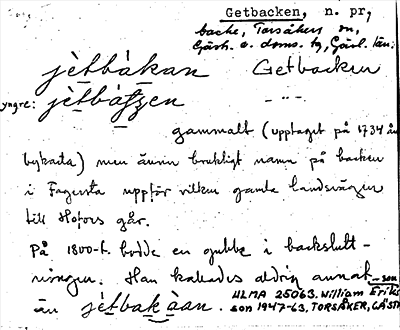 Getbacken, n. pr,
backe, Torsåkers sn,
Gästr. ö. doms. tg, Gävl. län;
jètbàkan Getbacken
yngre: jètbátʃen — " —
gammalt (upptaget på 1734 års
bykarta) men ännu brukligt namn på backen
i Fagersta uppför vilken gamla landsvägen
till Hofors går.
På 1800-t. bodde en gubbe i backslutt-
ningen. Han kallades aldrig annat
än jètbakàan.
ULMA 25063. William Eriks-
son 1947-63, TORSÅKER, GÄSTR